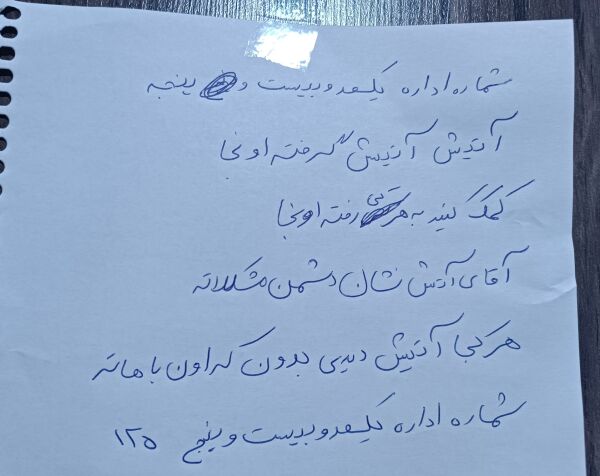 شماره اداره یکصد و بیست و پنجه
آتیش آتیش گرفته اونجا
کمک کنید به هر کی رفته اونجا
آقای آتش نشان دشمن مشکلاته
هر کجا آتیش دیدی بدون که اون باهاته
شماره اداره یکصد و بیست و پنج ۱۲۵